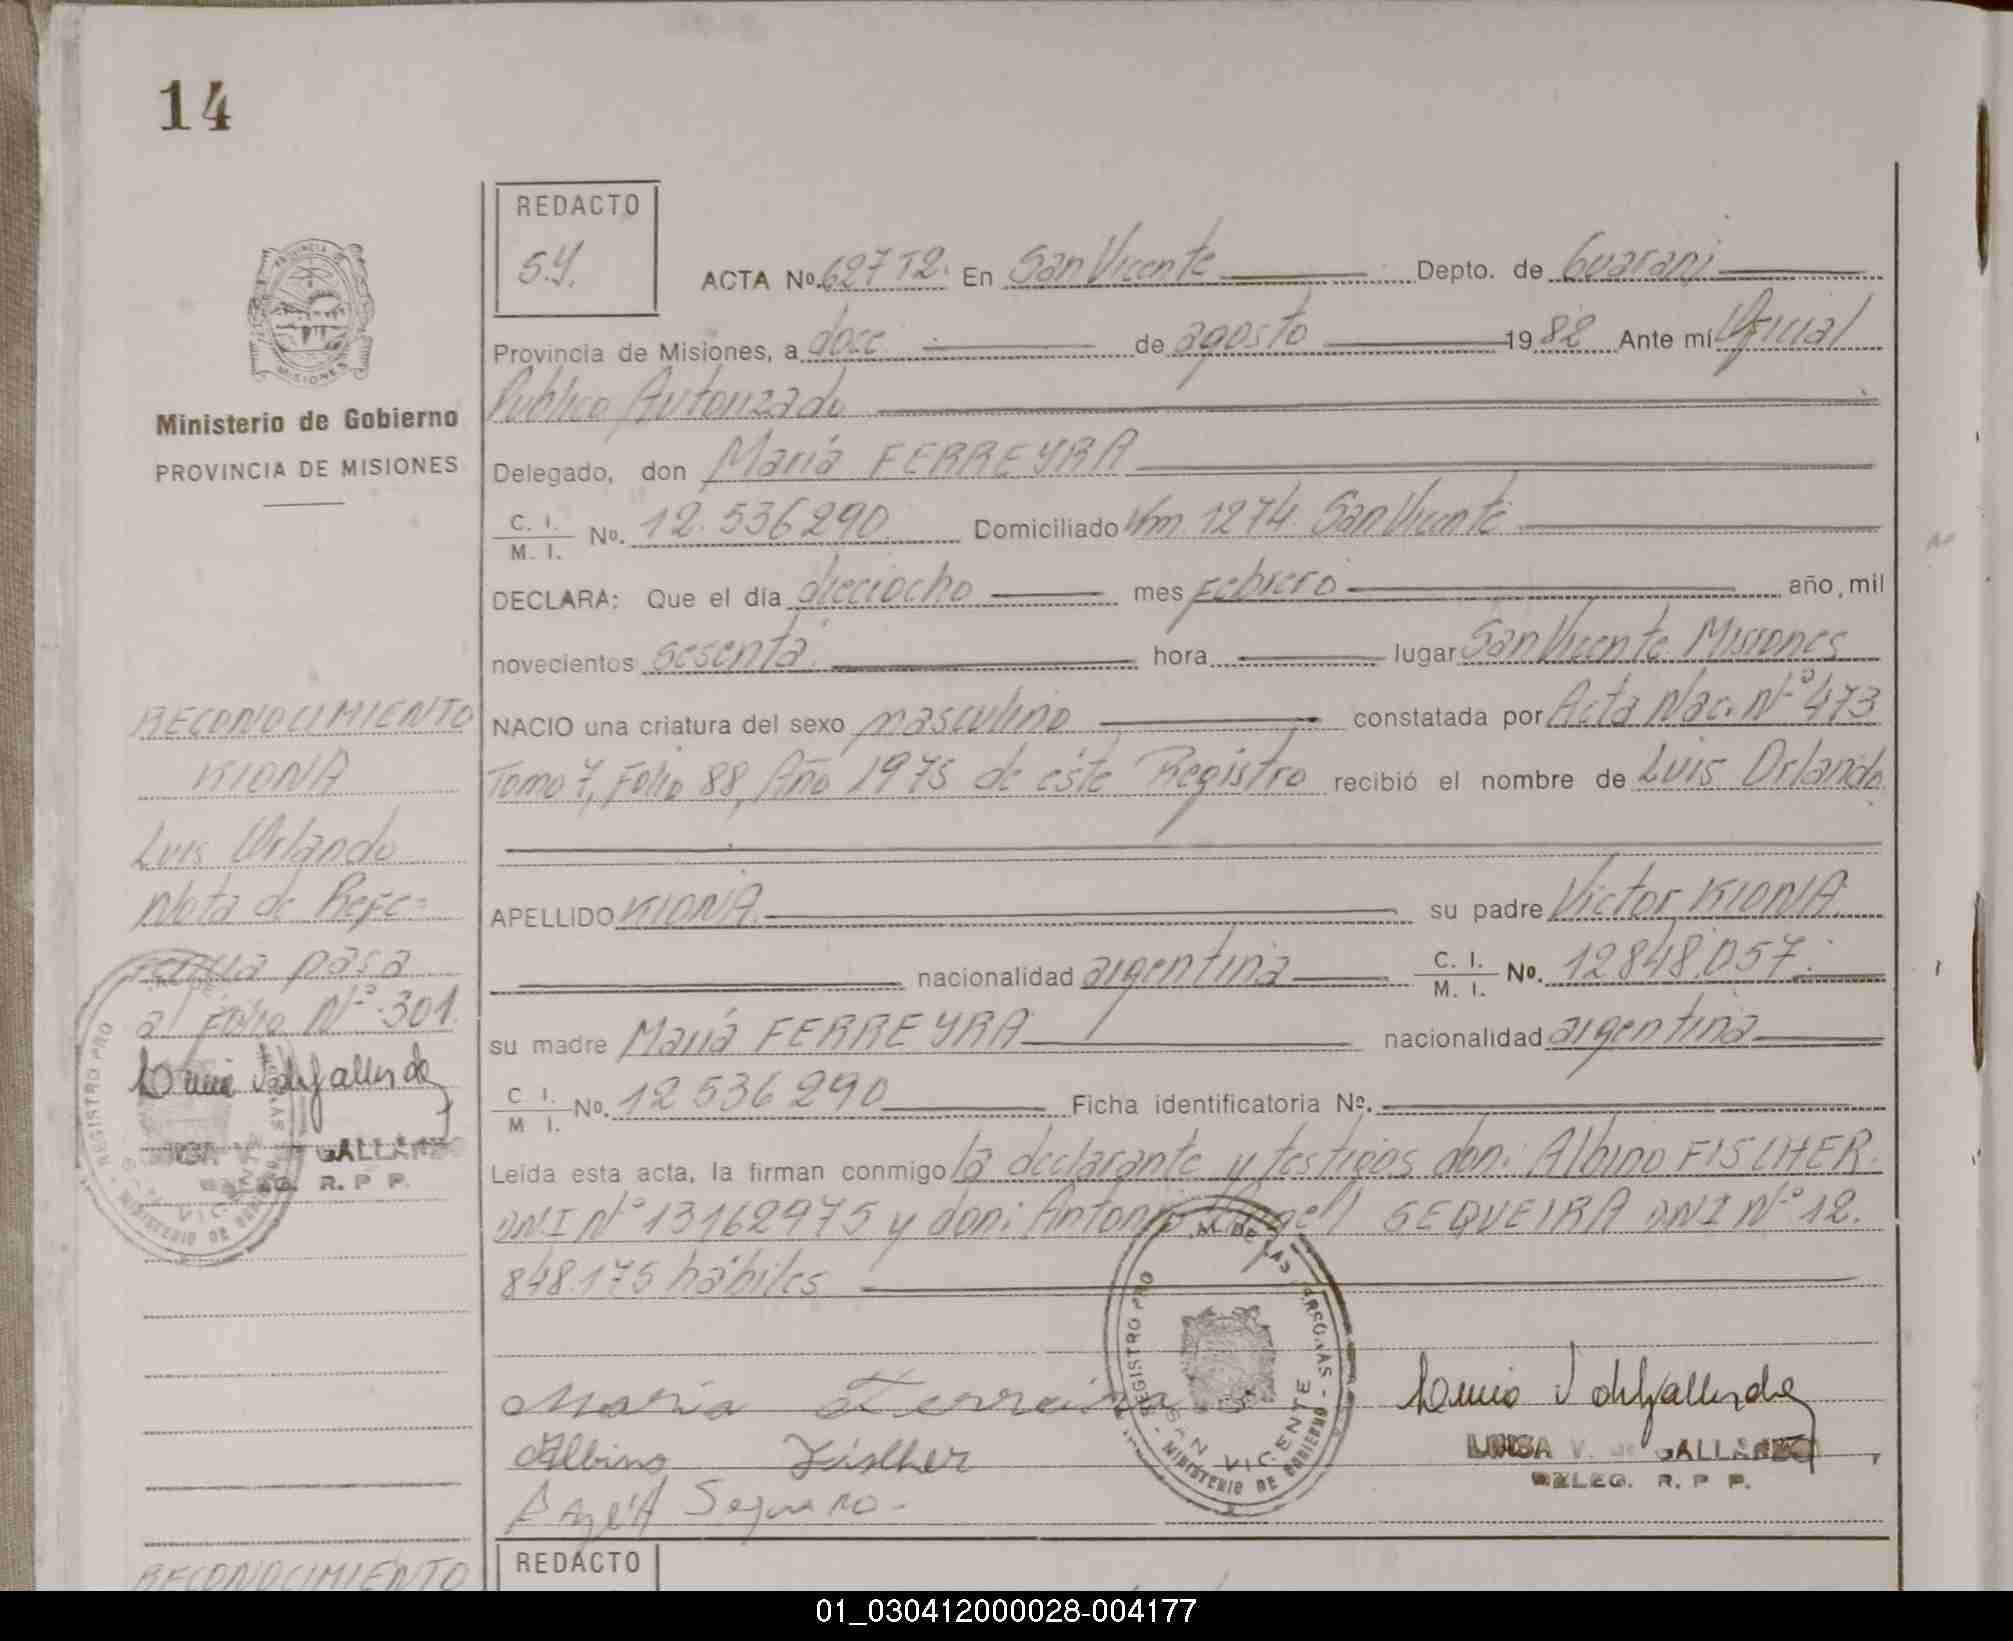 14
REDACTO
S.Y.
ACTA No. 627 T2. En San Vicente Depto. de Guaraní
Provincia de Misiones, a doce de agosto 1982 Ante mí Oficial
Público Autorizado
Delegado, don María FERREYRA
C. I. / M. I. No. 12.536290 Domiciliado Km 1274 San Vicente
DECLARA: Que el día dieciocho mes Febrero año, mil
novecientos sesenta hora lugar San Vicente Misiones
NACIO una criatura del sexo masculino constatada por Acta Nac. Nº 473
Tomo 7, Folio 88, Año 1975 de éste Registro recibió el nombre de Luis Orlando
APELLIDO KIONA su padre Victor KIONA
nacionalidad argentina C. I. / M. I. No. 12.848.057.
su madre María FERREYRA nacionalidad argentina
C. I. / M. I. No. 12536290 Ficha identificatoria No.
Leída esta acta, la firman conmigo la declarante y testigos don: Albino FISCHER
DNI Nº 13162975 y don: Antonio SEQUEIRA DNI Nº 12.
848.175 hábiles
Maria Ferreira
Albino Fischer
LUISA V. de GALLARDO
DELEG. R. P P.
REGISTRO PRO AL DE LAS PERSONAS - MINISTERIO DE GOBIERNO
SAN VICENTE
REDACTO
PROVINCIA DE MISIONES
Ministerio de Gobierno
PROVINCIA DE MISIONES
RECONOCIMIENTO
KIONA
Luis Orlando
Nota de Refe=
rencia pasa
al Folio Nº 301.
GALLARDO
DELEG. R. P P.
REGISTRO PRO
MINISTERIO DE
RECONOCIMIENTO
01_030412000028-004177